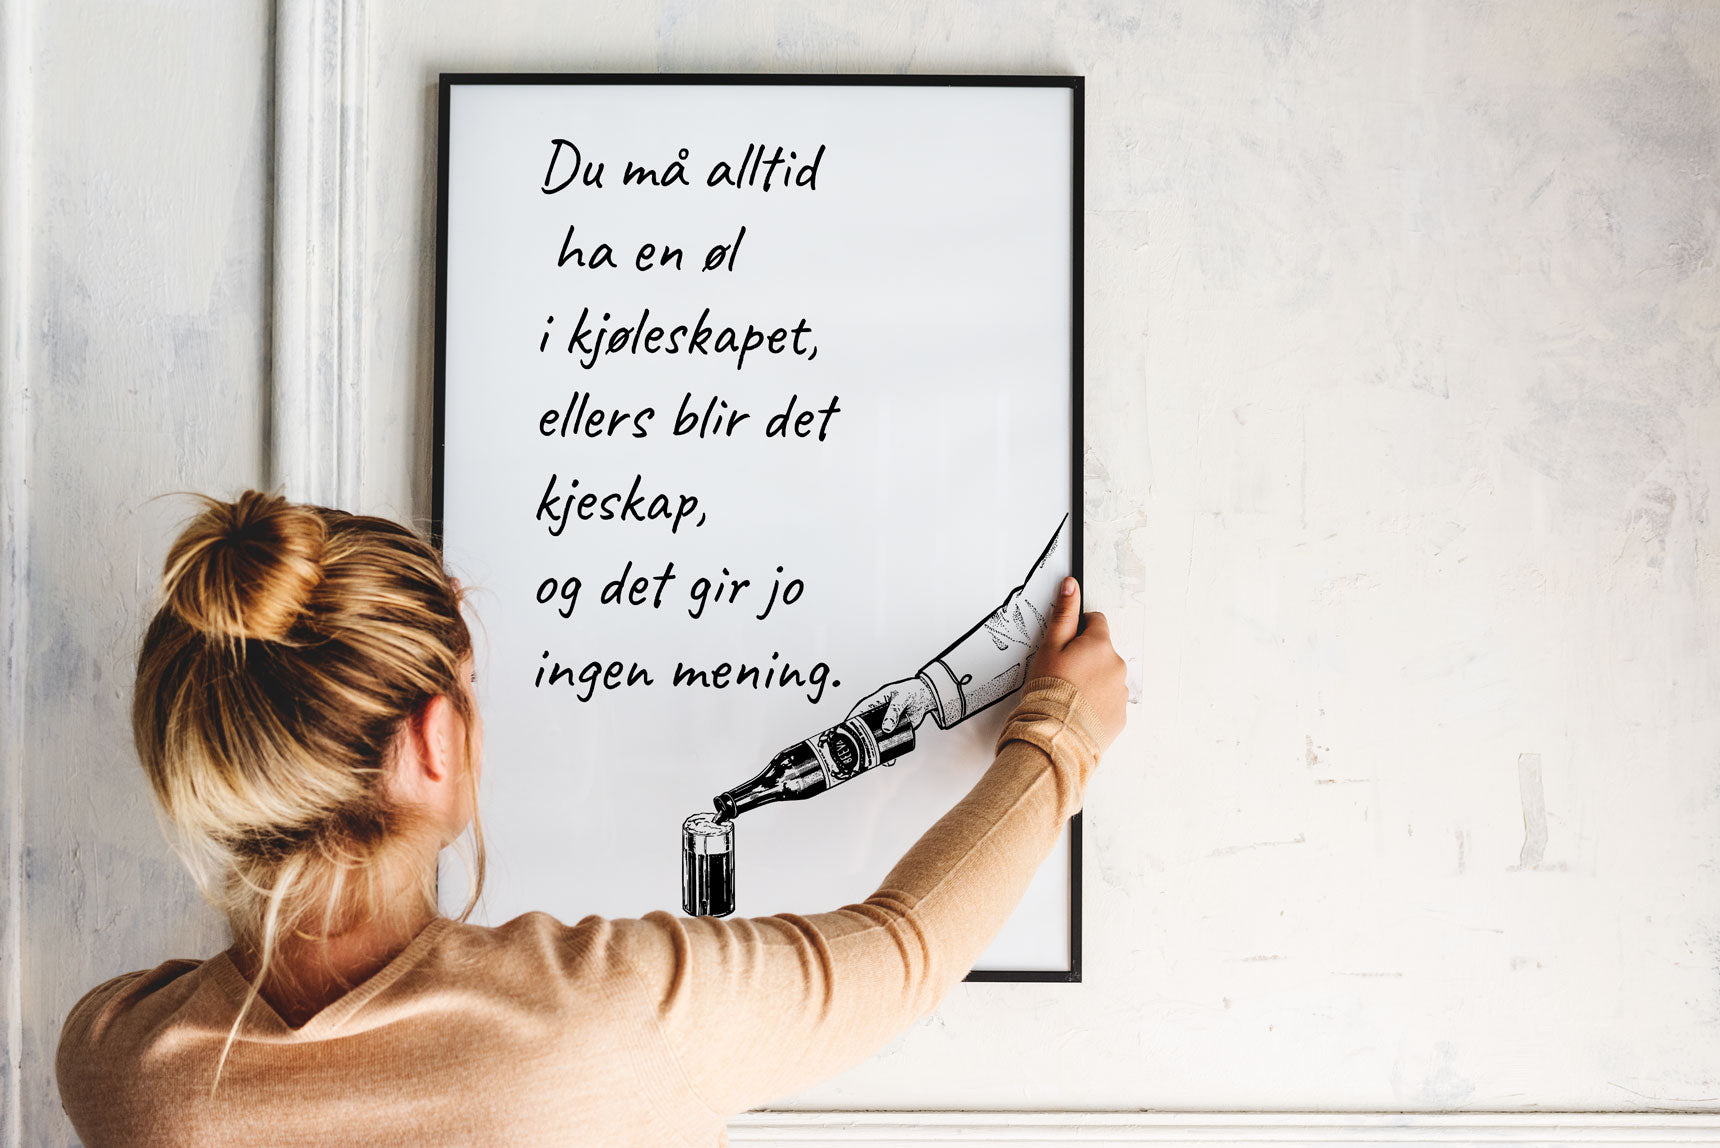 Du må alltid
ha en øl
i kjøleskapet,
ellers blir det
kjeskap,
og det gir jo
ingen mening.